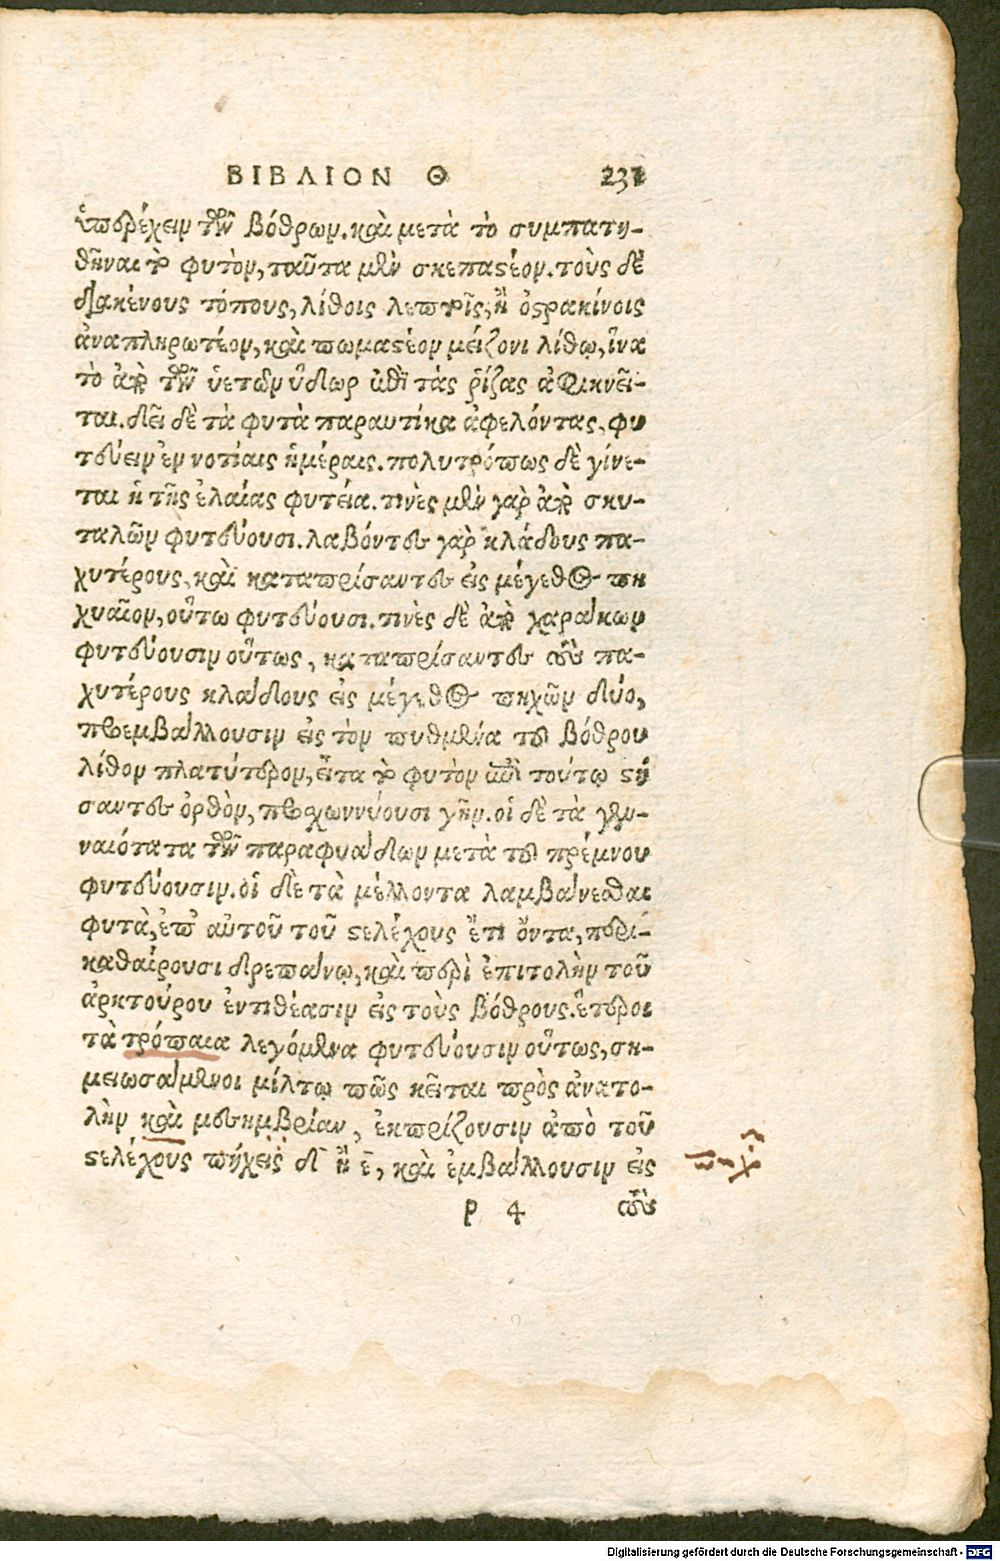 ΒΙΒΛΙΟΝ Θ 231
ὑπερέχειν τῶν βόθρων. καὶ μετὰ τὸ συμπατη-
θῆναι τὸ φυτὸν, ταῦτα μὲν σκεπαστέον. τοὺς δὲ
διακένους τόπους, λίθοις λεπτοῖς, ἢ ὀστρακίνοις
ἀναπληρωτέον, καὶ πωμαστέον μείζονι λίθῳ, ἵνα
τὸ ἀπὸ τῶν ὑετῶν ὕδωρ ἐπὶ τὰς ῥίζας ἀφικνεῖ-
ται. δεῖ δὲ τὰ φυτὰ παραυτίκα ἀφελόντας, φυ
τεύειν ἐν νοτίαις ἡμέραις. πολυτρόπως δὲ γίνε-
ται ἡ τῆς ἐλαίας φυτεία. τινὲς μὲν γὰρ ἀπὸ σκυ-
ταλῶν φυτεύουσι. λαβόντες γὰρ κλάδους πα-
χυτέρους, καὶ καταπρίσαντες εἰς μέγεθος πη
χυαῖον, οὕτω φυτεύουσι. τινὲς δὲ ἀπὸ χαράκων
φυτεύουσιν οὕτως, καταπρίσαντες τοὺς πα-
χυτέρους κλάδους εἰς μέγεθος πηχῶν δύο,
προεμβάλλουσιν εἰς τὸν πυθμένα τοῦ βόθρου
λίθον πλατύτερον, εἶτα τὸ φυτὸν ἐπὶ τούτῳ στή
σαντες ὀρθὸν, προσχωννύουσι γῆν. οἱ δὲ τὰ γεν-
ναιότατα τῶν παραφυάδων μετὰ τοῦ πρέμνου
φυτεύουσιν. οἱ δὲ τὰ μέλλοντα λαμβάνεσθαι
φυτὰ, ἐπ' αὐτοῦ τοῦ στελέχους ἔτι ὄντα, περι-
καθαίρουσι δρεπάνῳ, καὶ περὶ ἐπιτολὴν τοῦ
ἀρκτούρου ἐντιθέασιν εἰς τοὺς βόθρους. ἕτεροι
τὰ τρόπαια λεγόμενα φυτεύουσιν οὕτως, ση-
μειωσάμενοι μίλτῳ πῶς κεῖται πρὸς ἀνατο-
λὴν καὶ μεσημβρίαν, ἐκπρίζουσιν ἀπὸ τοῦ
στελέχους πήχεις δ ἢ ε, καὶ ἐμβάλλουσιν εἰς
ρ 4 τοὺς